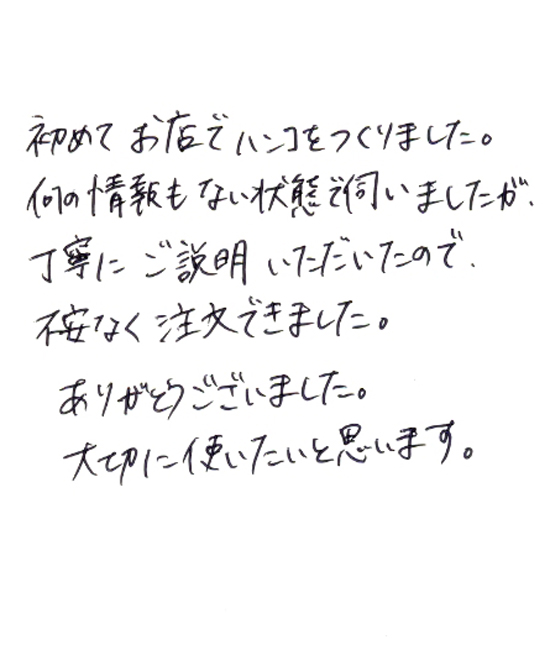 初めてお店でハンコをつくりました。
何の情報もない状態で伺いましたが、
丁寧にご説明いただいたので、
不安なく注文できました。
ありがとうございました。
大切に使いたいと思います。